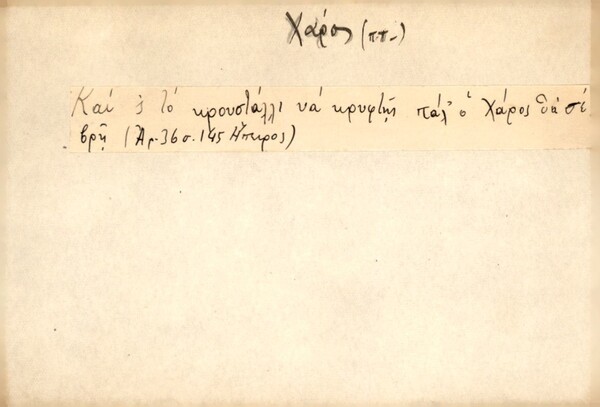 Χάρος (ππ-)
Καί ς τό κρουστάλλι νά κρυφτῇς πάλ' ὁ Χάρος θά σέ
βρῇ (Ἀρ. 36 σ. 145 Ἤπειρος)